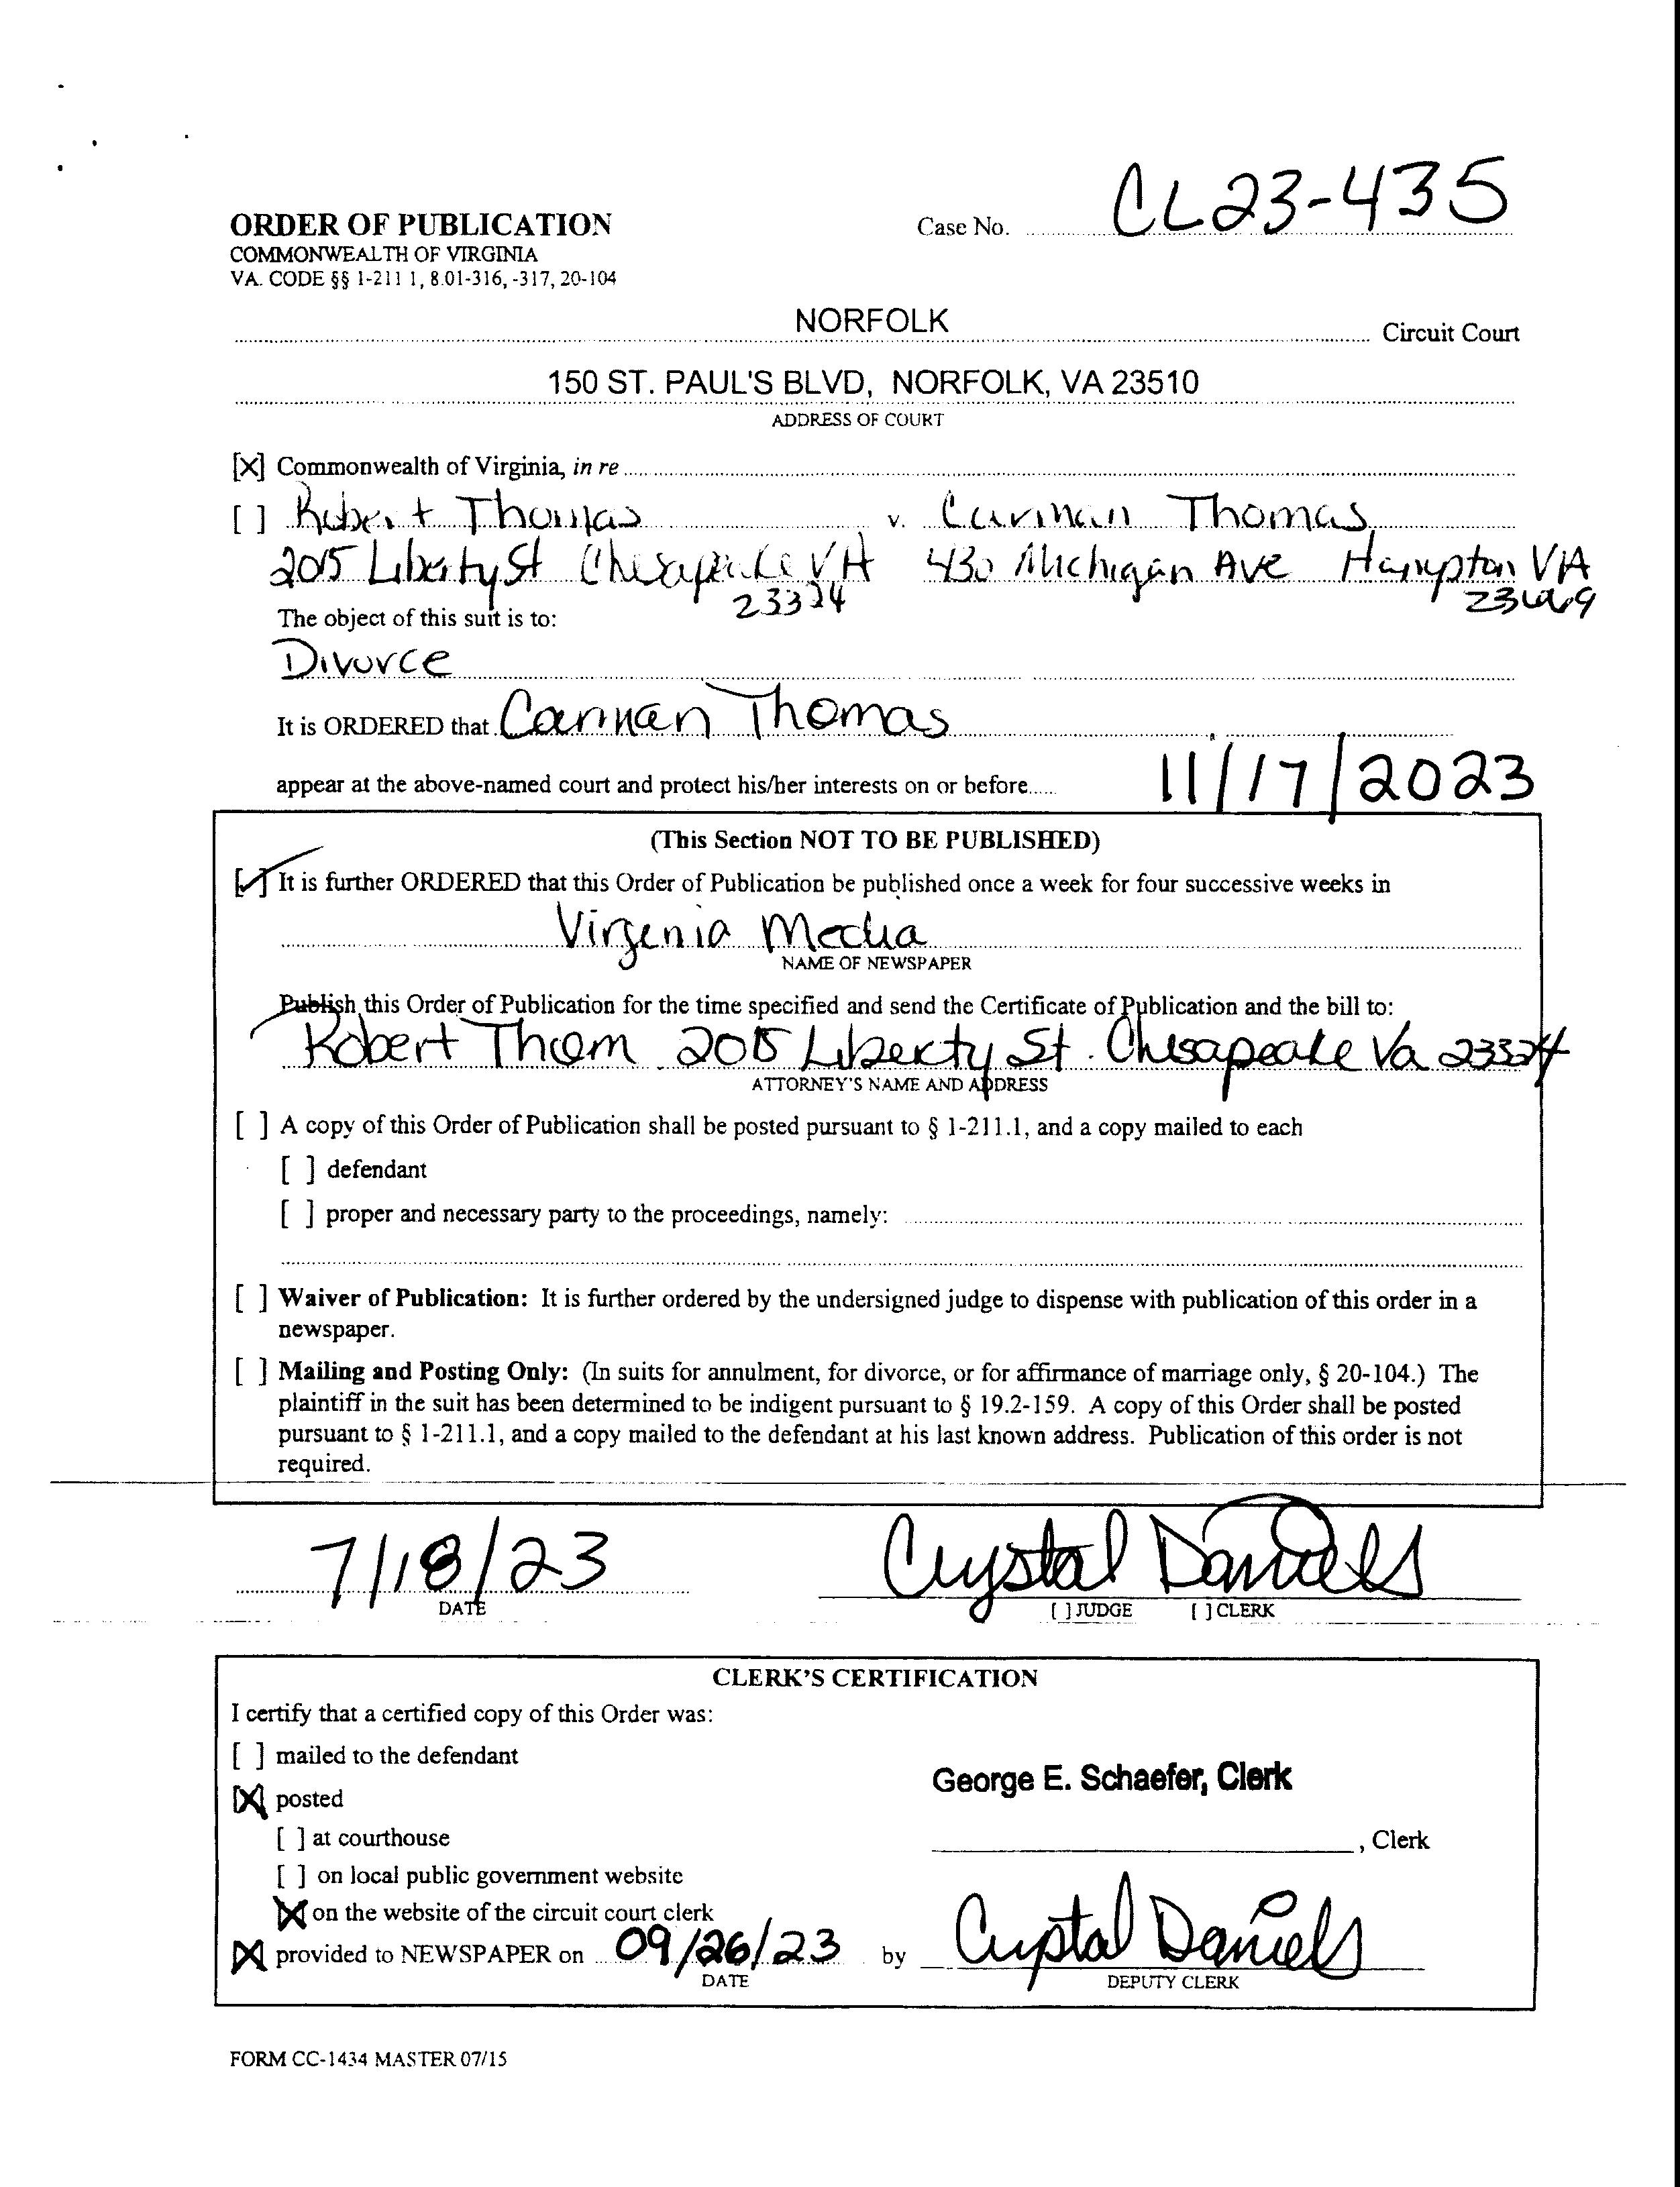 CL23-435
ORDER OF PUBLICATION Case No.
COMMONWEALTH OF VIRGINIA
VA. CODE §§ 1-211 1, 8.01-316, -317, 20-104
NORFOLK Circuit Court
150 ST. PAUL'S BLVD, NORFOLK, VA 23510
ADDRESS OF COURT
[X] Commonwealth of Virginia, in re
[ ] Robert Thomas v. Carman Thomas
2015 Liberty St Chesapeake VA 430 Michigan Ave Hampton VA
23324 23669
The object of this suit is to:
Divorce
It is ORDERED that Carman Thomas
appear at the above-named court and protect his/her interests on or before 11/17/2023
(This Section NOT TO BE PUBLISHED)
[✓] It is further ORDERED that this Order of Publication be published once a week for four successive weeks in
Virgenia Media
NAME OF NEWSPAPER
Publish this Order of Publication for the time specified and send the Certificate of Publication and the bill to:
Robert Thom 2015 Liberty St. Chesapeake Va 23324
ATTORNEY'S NAME AND ADDRESS
[ ] A copy of this Order of Publication shall be posted pursuant to § 1-211.1, and a copy mailed to each
[ ] defendant
[ ] proper and necessary party to the proceedings, namely:
[ ] Waiver of Publication: It is further ordered by the undersigned judge to dispense with publication of this order in a
newspaper.
[ ] Mailing and Posting Only: (In suits for annulment, for divorce, or for affirmance of marriage only, § 20-104.) The
plaintiff in the suit has been determined to be indigent pursuant to § 19.2-159. A copy of this Order shall be posted
pursuant to § 1-211.1, and a copy mailed to the defendant at his last known address. Publication of this order is not
required.
7/18/23 Crystal Daniels
DATE [ ] JUDGE [ ] CLERK
CLERK'S CERTIFICATION
I certify that a certified copy of this Order was:
[ ] mailed to the defendant
George E. Schaefer, Clerk
[X] posted
[ ] at courthouse , Clerk
[ ] on local public government website
[X] on the website of the circuit court clerk
[X] provided to NEWSPAPER on 09/26/23 by Crystal Daniels
DATE DEPUTY CLERK
FORM CC-1434 MASTER 07/15